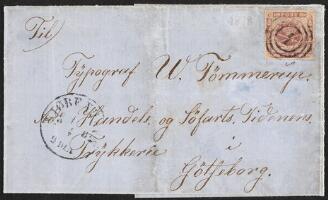 Til
Typograf W. Tömmerup
Handels og Söfarts Tidenens
Trykkerie
i
Götheborg.